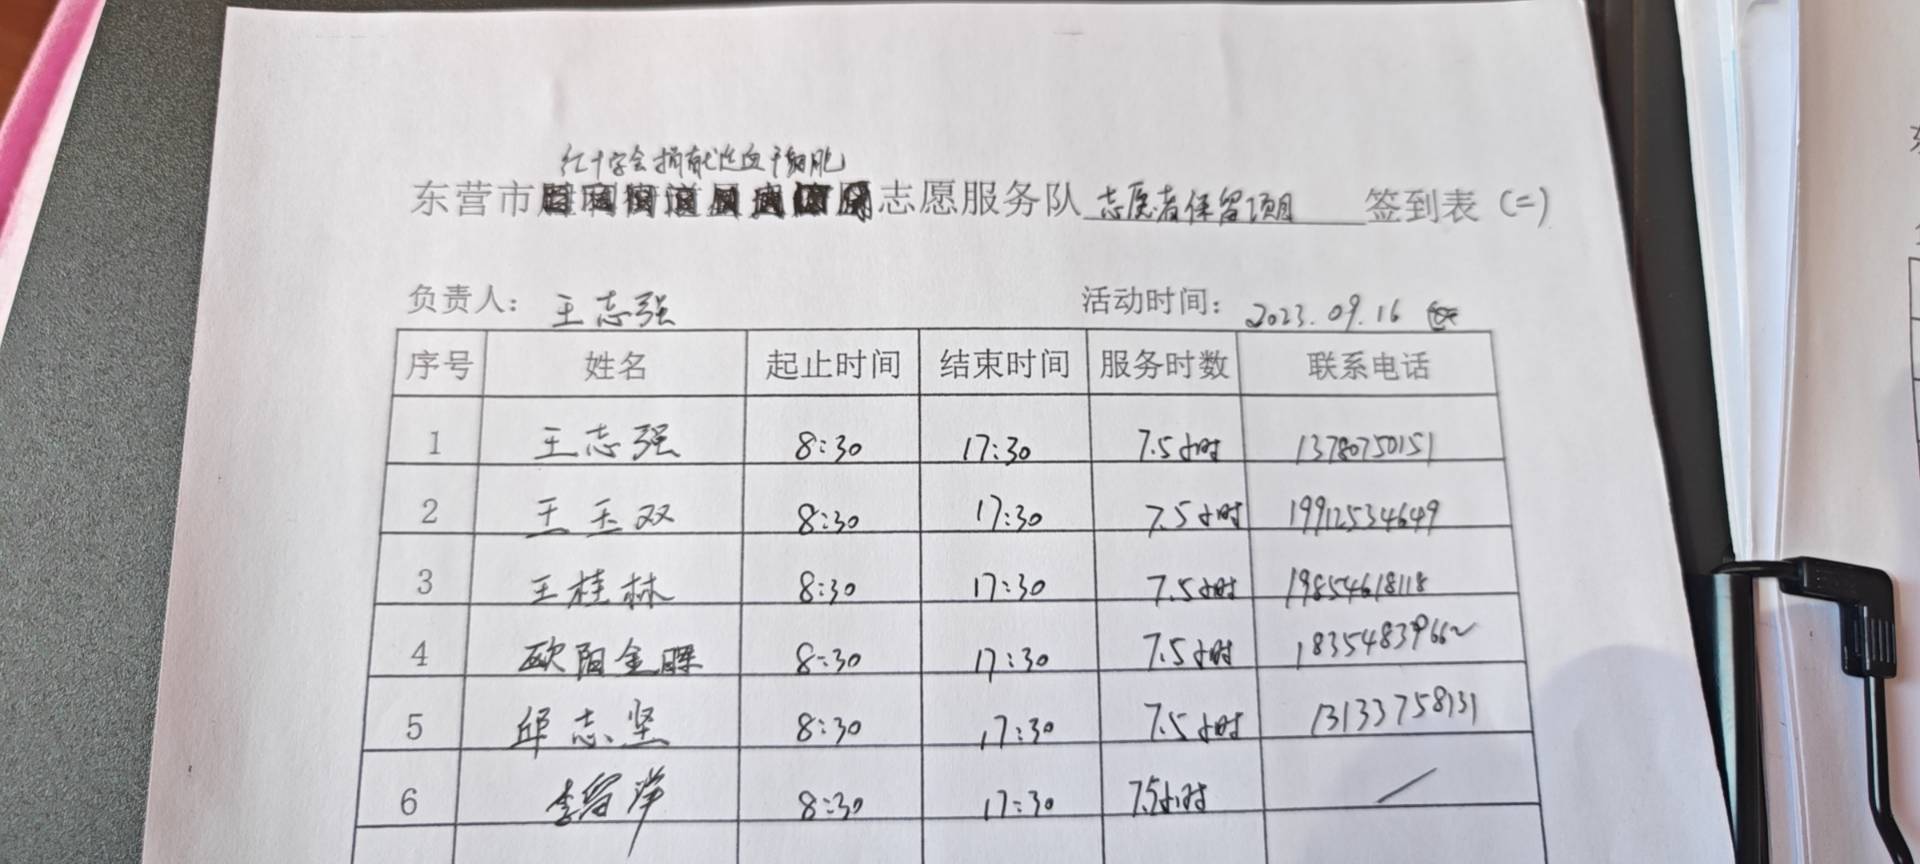 红十字会捐献造血干细胞
东营市 志愿服务队 志愿者保留项目 签到表 (二)
负责人: 王志强 活动时间: 2023.09.16
序号 姓名 起止时间 结束时间 服务时数 联系电话
1 王志强 8:30 17:30 7.5小时 13780750151
2 王玉双 8:30 17:30 7.5小时 19912534649
3 王桂林 8:30 17:30 7.5小时 19854618118
4 欧阳金晖 8:30 17:30 7.5小时
5 邱志坚 8:30 17:30 7.5小时 13133758131
6 8:30 17:30 7.5小时 /